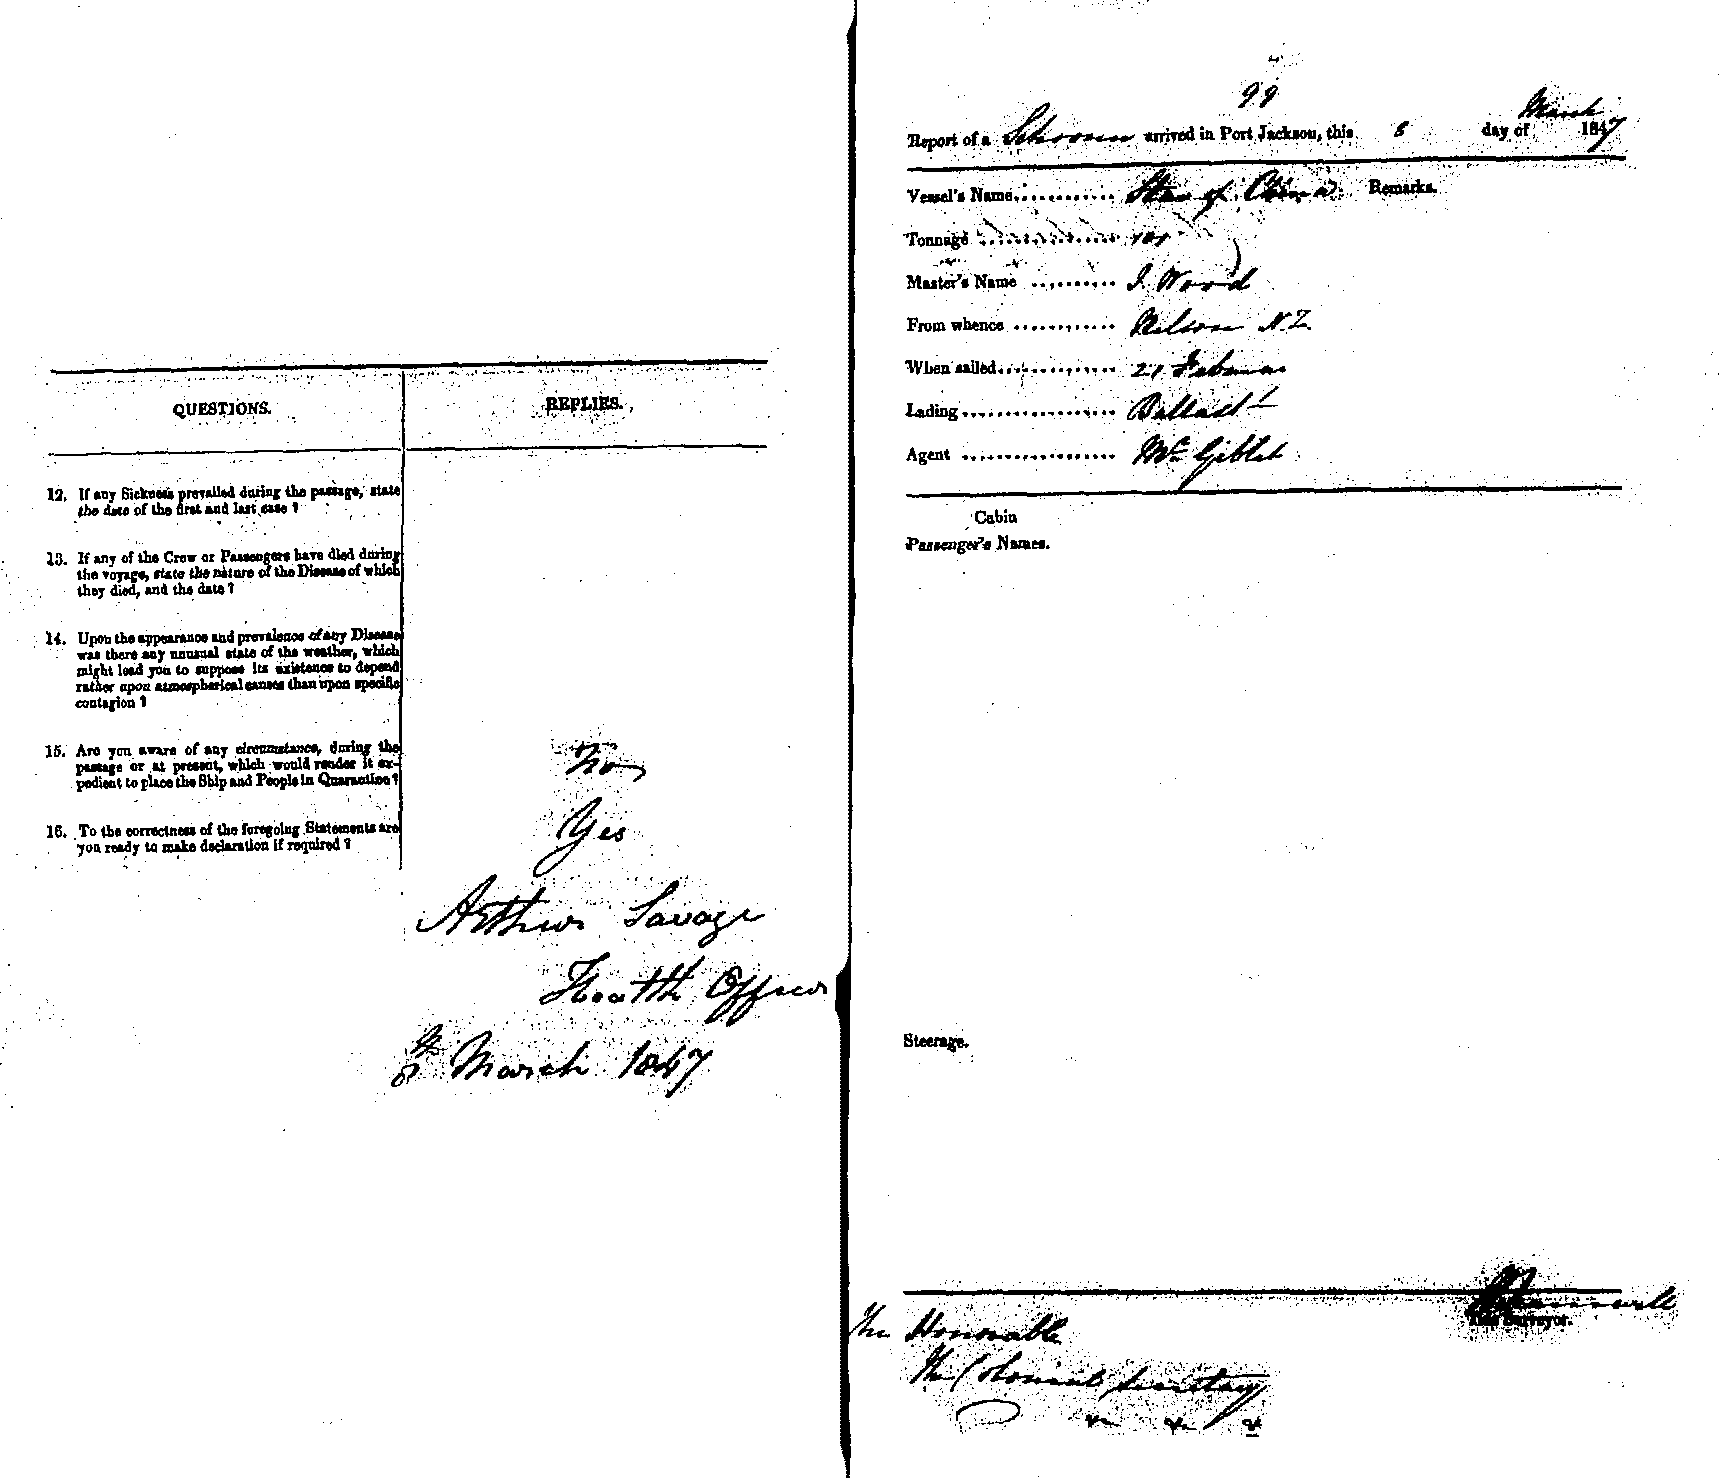 QUESTIONS. REPLIES.
12. If any Sickness prevailed during the passage, state
the date of the first and last case ?
13. If any of the Crew or Passengers have died during
the voyage, state the nature of the Disease of which
they died, and the date ?
14. Upon the appearance and prevalence of any Disease
was there any unusual state of the weather, which
might lead you to suppose its existence to depend
rather upon atmospherical causes than upon specific
contagion ?
15. Are you aware of any circumstance, during the
passage or at present, which would render it ex-
pedient to place the Ship and People in Quarantine ?
No
16. To the correctness of the foregoing Statements are
you ready to make declaration if required ?
Yes
Arthur Savage
Health Officer
8th March 1847
99
Report of a Schooner arrived in Port Jackson, this 8 day of March 1847
Vessel's Name Star of China Remarks.
Tonnage 101
Master's Name J. Wood
From whence Nelson NZ
When sailed 21 February
Lading Ballast
Agent
Cabin
Passenger's Names.
Steerage.
Tide Surveyor.
The Honorable
The Colonial Secretary
&c &c &c